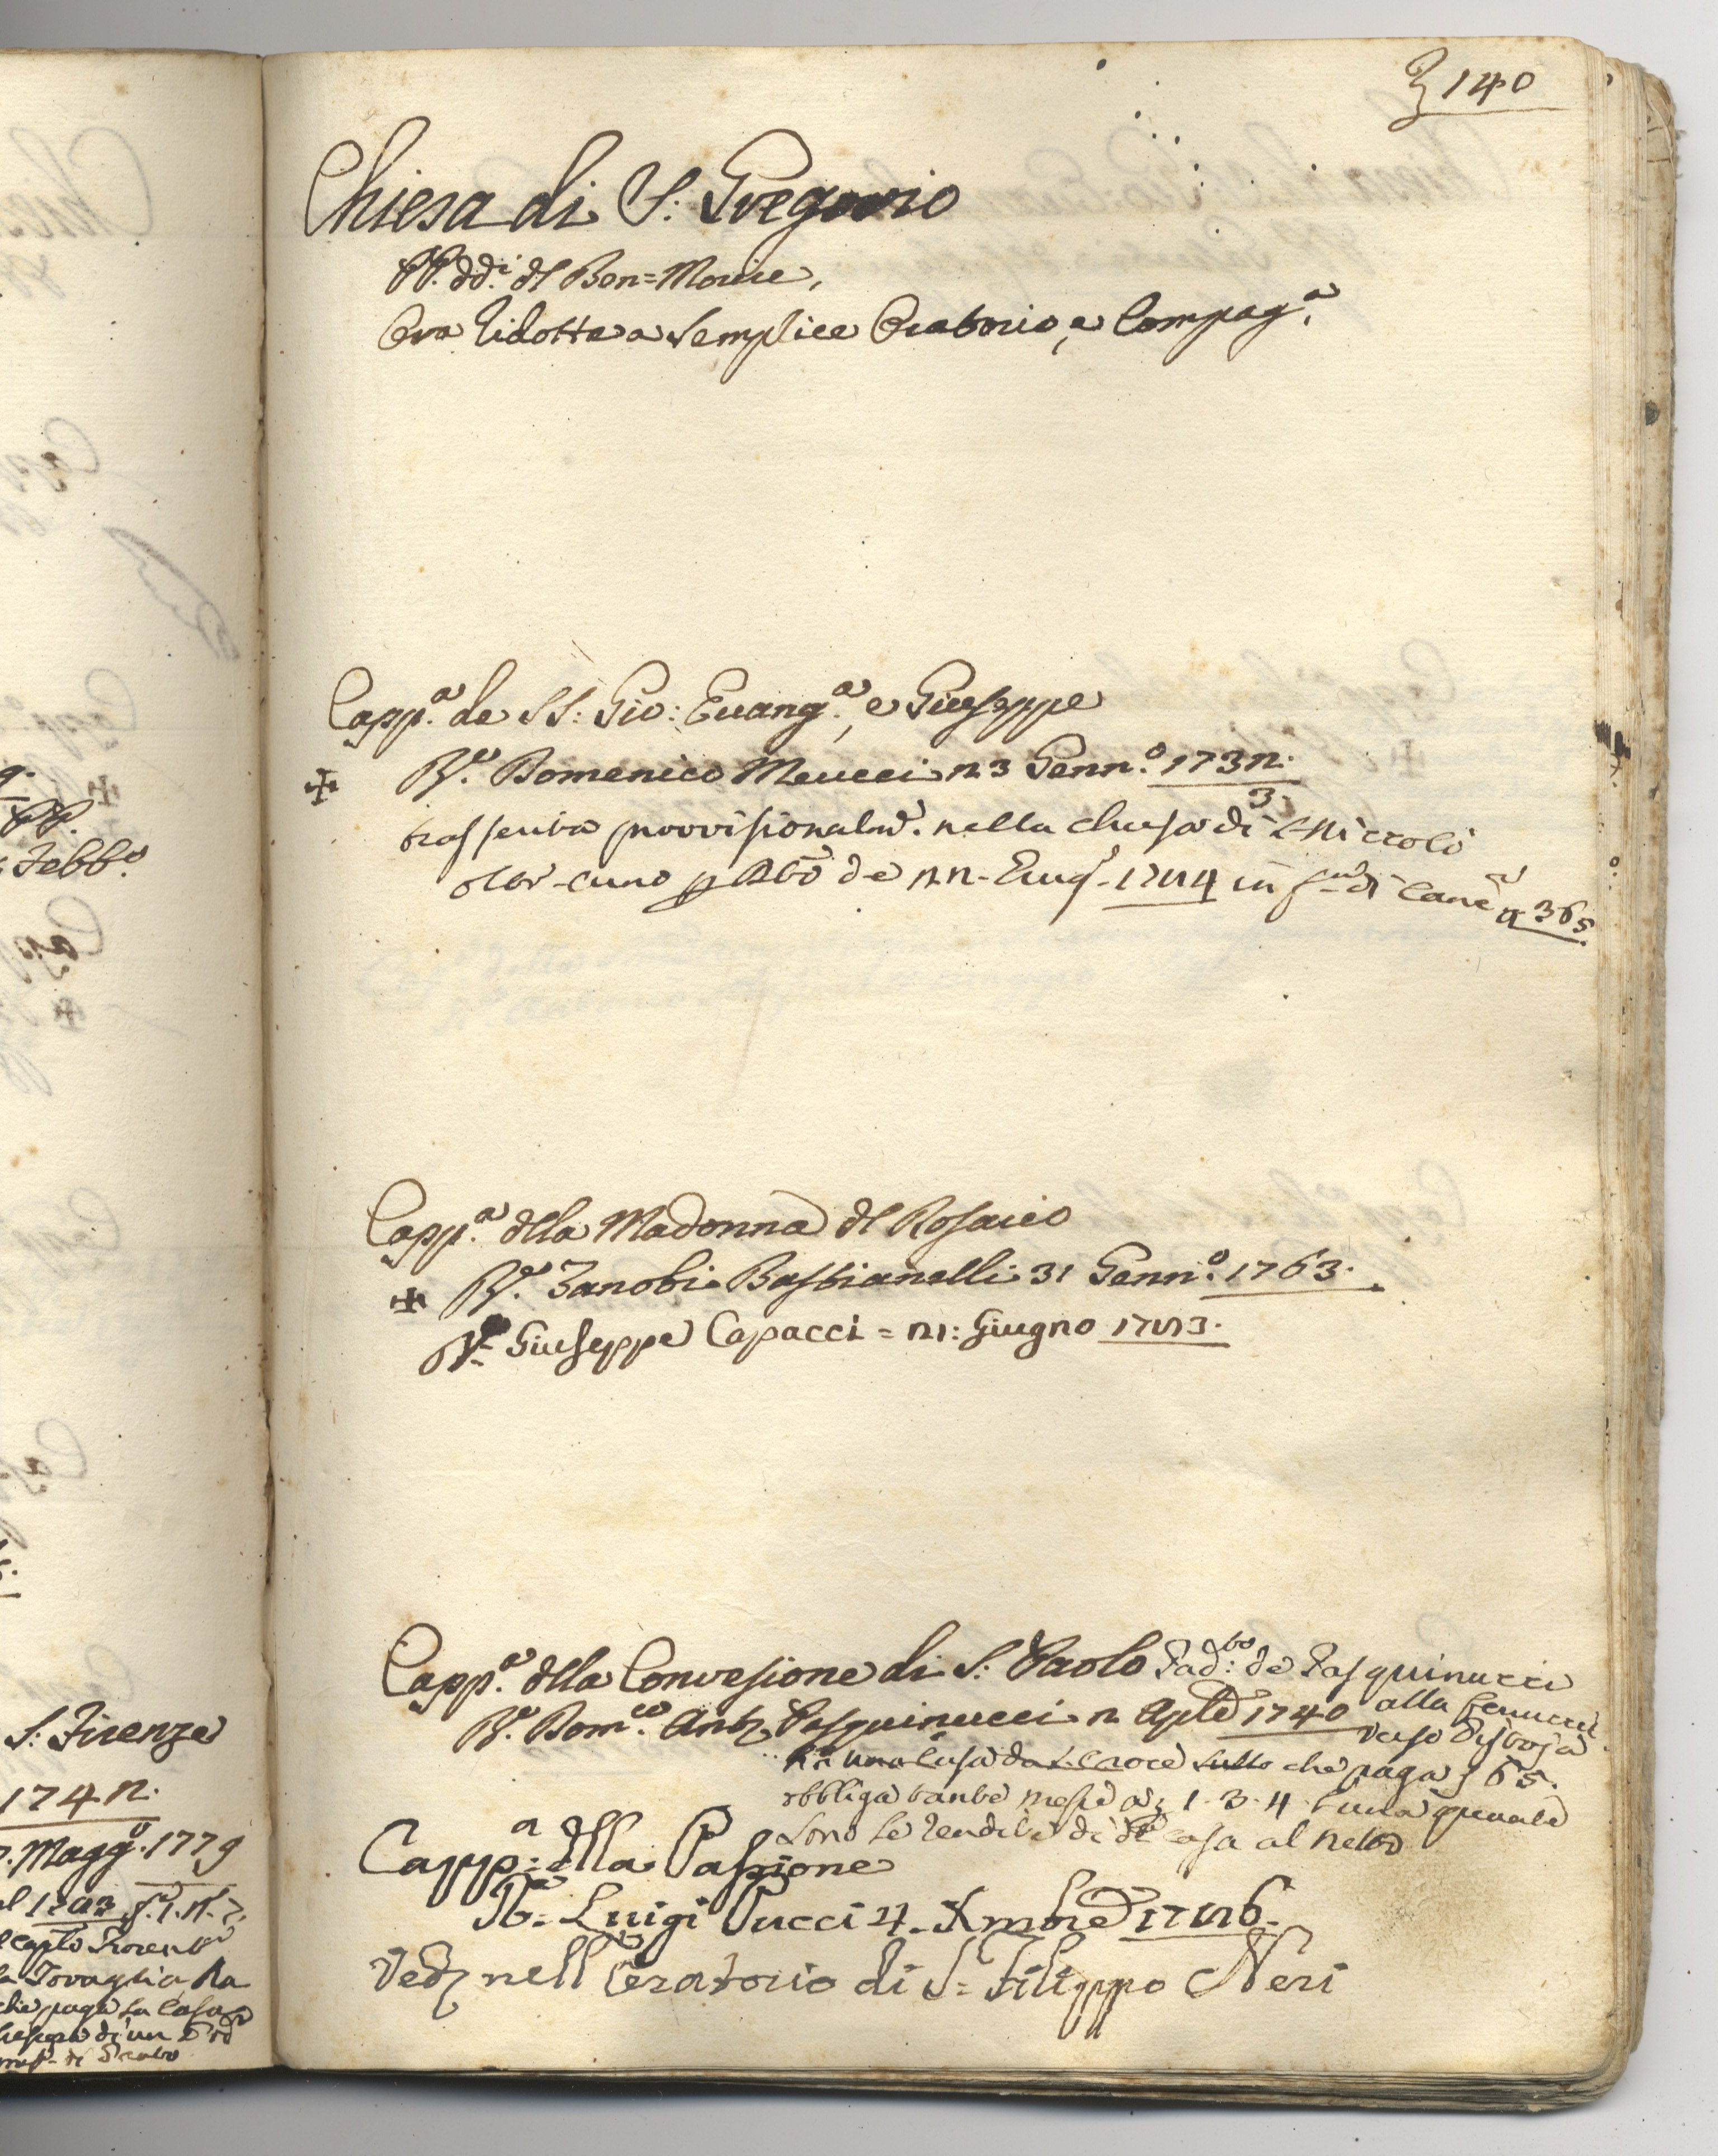 140
Chiesa di S: Gregorio
PP. dd.i dl Ben=Morire,
Ora ridotta a semplice Oratorio, e Compag.a
Capp.a de SS: Gio: Euang.a, e Giuseppe
R.o Domenico Meucci 23 Genn.o 1732.
3.
trasferita provvisionalm.e nella chiesa di S. Niccolò
oltr-arno p de 22- 1784 in di Canc.a a 365.
Capp.a dlla Madonna dl Rosario
R.o Zanobi Bastianelli 31 Genn.o 1763.
R. Giuseppe Capacci = 21: Giugno 1783.
Capp.a dlla Conversione di S: Paolo Pad.to de Pasquinucci
R.o Dom.co Ant. Pasquinucci 2 Aple 1740 alla
una Casa da S. Croce che paga 65.
obbliga tante messe a 1.3.4. l'una quante
sono le rendite di da casa al netto
Capp:a dlla Passione
Luigi Pucci 4. Xmbre 1786.
Ved nell Oratorio di S: Filippo Neri
Febb.o
S: Firenze
1742.
Magg.o 1779
Tovaglia ha
che paga la Casa
di un